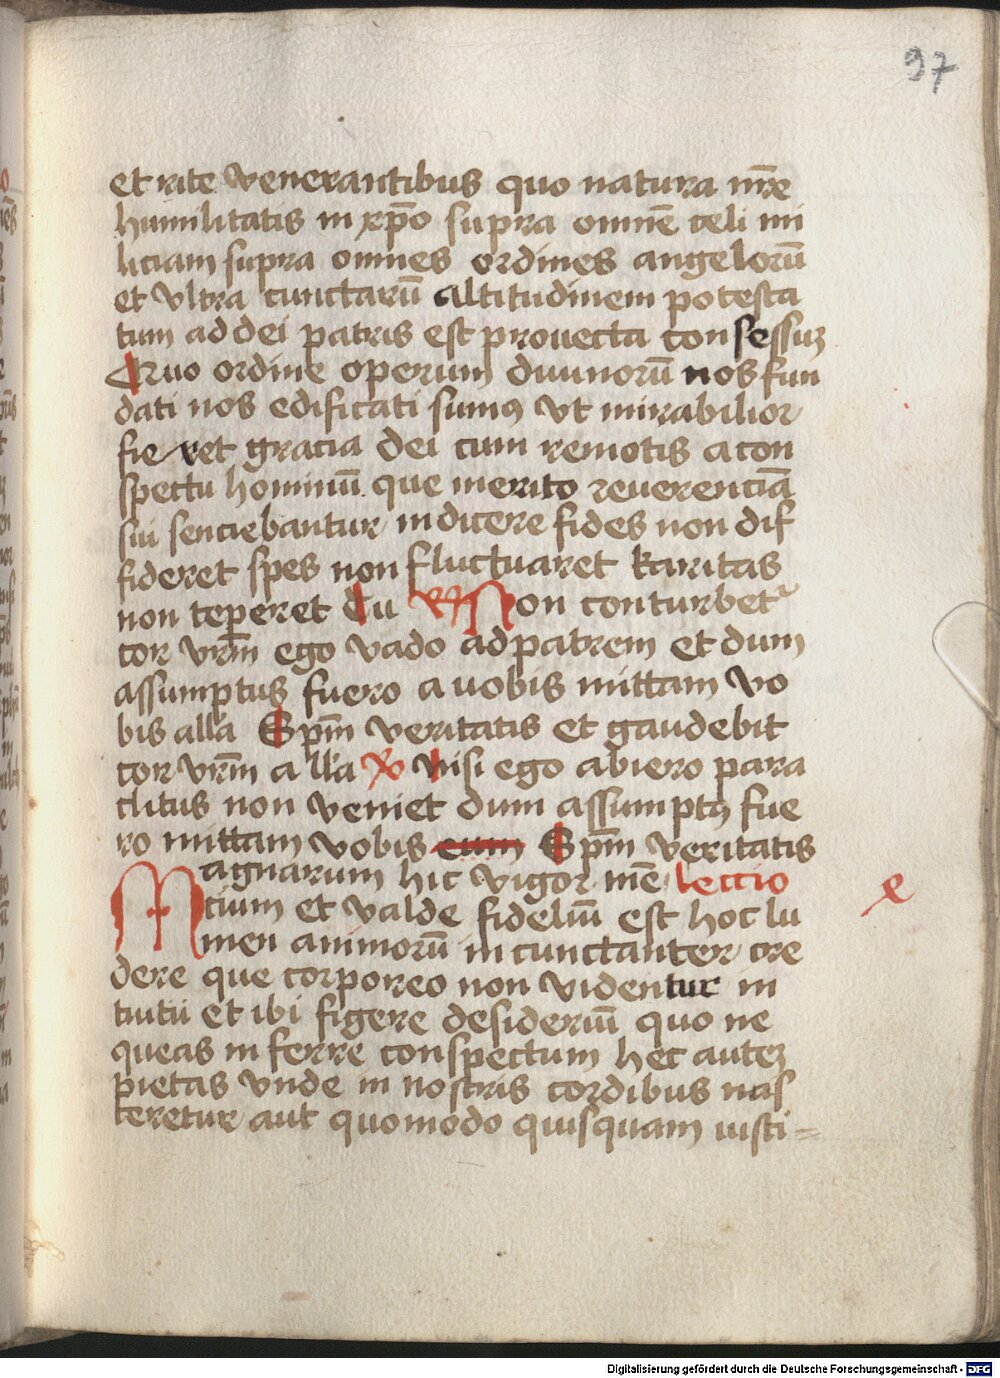 97
et rite venerantibus quo natura nr̄e
humilitatis in xp̄o supra omnē celi mi
liciam supra omnes ordines angelorū
et vltra cunctarū altitudinem potesta
tum ad dei patris est prouecta consessuꝫ
Quo ordine operum diuinorū nos fun
dati nos edificati sumꝰ vt mirabilior
fieret gracia dei cum remotis a con
spectu hominū que merito reuerenciā
sui senciebantur indicere fides non dif
fideret spes non fluctuaret karitas
non teperet Tu Non conturbet᷑
cor vr̄m ego vado ad patrem et dum
assumptus fuero a uobis mittam vo
bis alla Sp̄m veritatis et gaudebit
cor vr̄m alla Nisi ego abiero para
clitus non veniet dum assumptꝰ fue
ro mittam vobis eum Sp̄m veritatis
Magnarum hic vigor mē lectio
tium et valde fideliū est hoc lu
men animorū incunctanter cre
dere que corporeo non videntur in
tuitu et ibi figere desideriū quo ne
queas inferre conspectum hec auteꝫ
pietas vnde in nostris cordibus nas
ceretur aut quomodo quisquam iusti=
Digitalisierung gefördert durch die Deutsche Forschungsgemeinschaft - DFG